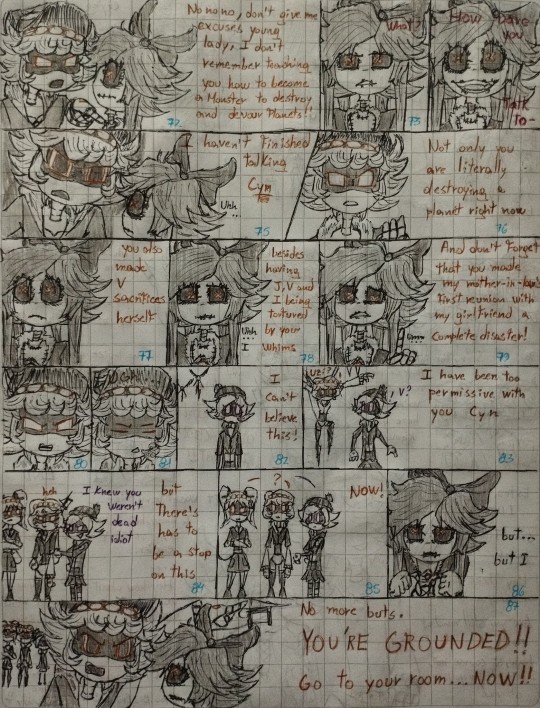 No no no, don't give me
excuses young
lady, I don't
remember teaching
you how to become
a Monster to destroy
and devour Planets!!
72
What?!
73
How Dare
you
Talk
To-
I haven't Finished
talking
Cyn
Uhh
...
75
Not only you
are literally
destroying a
planet right now
76
you also
made
V
sacrifices
herself
77
besides
having
J, V and
I being
tortured
by your
whims
Uhh
I
78
And don't forget
that you made
my mother-in-law's
first reunion with
my girlfriend a
complete disaster!
79
80
81
I
can't
believe
this!
82
UZI?!
V?
I have been too
permissive with
you Cyn
83
heh
I knew you
weren't
dead
idiot
but
There's
has to
be a stop
on this
84
?
NOW!
85
but...
but I
86
87
No more buts.
YOU'RE GROUNDED!!
Go to your room...NOW!!